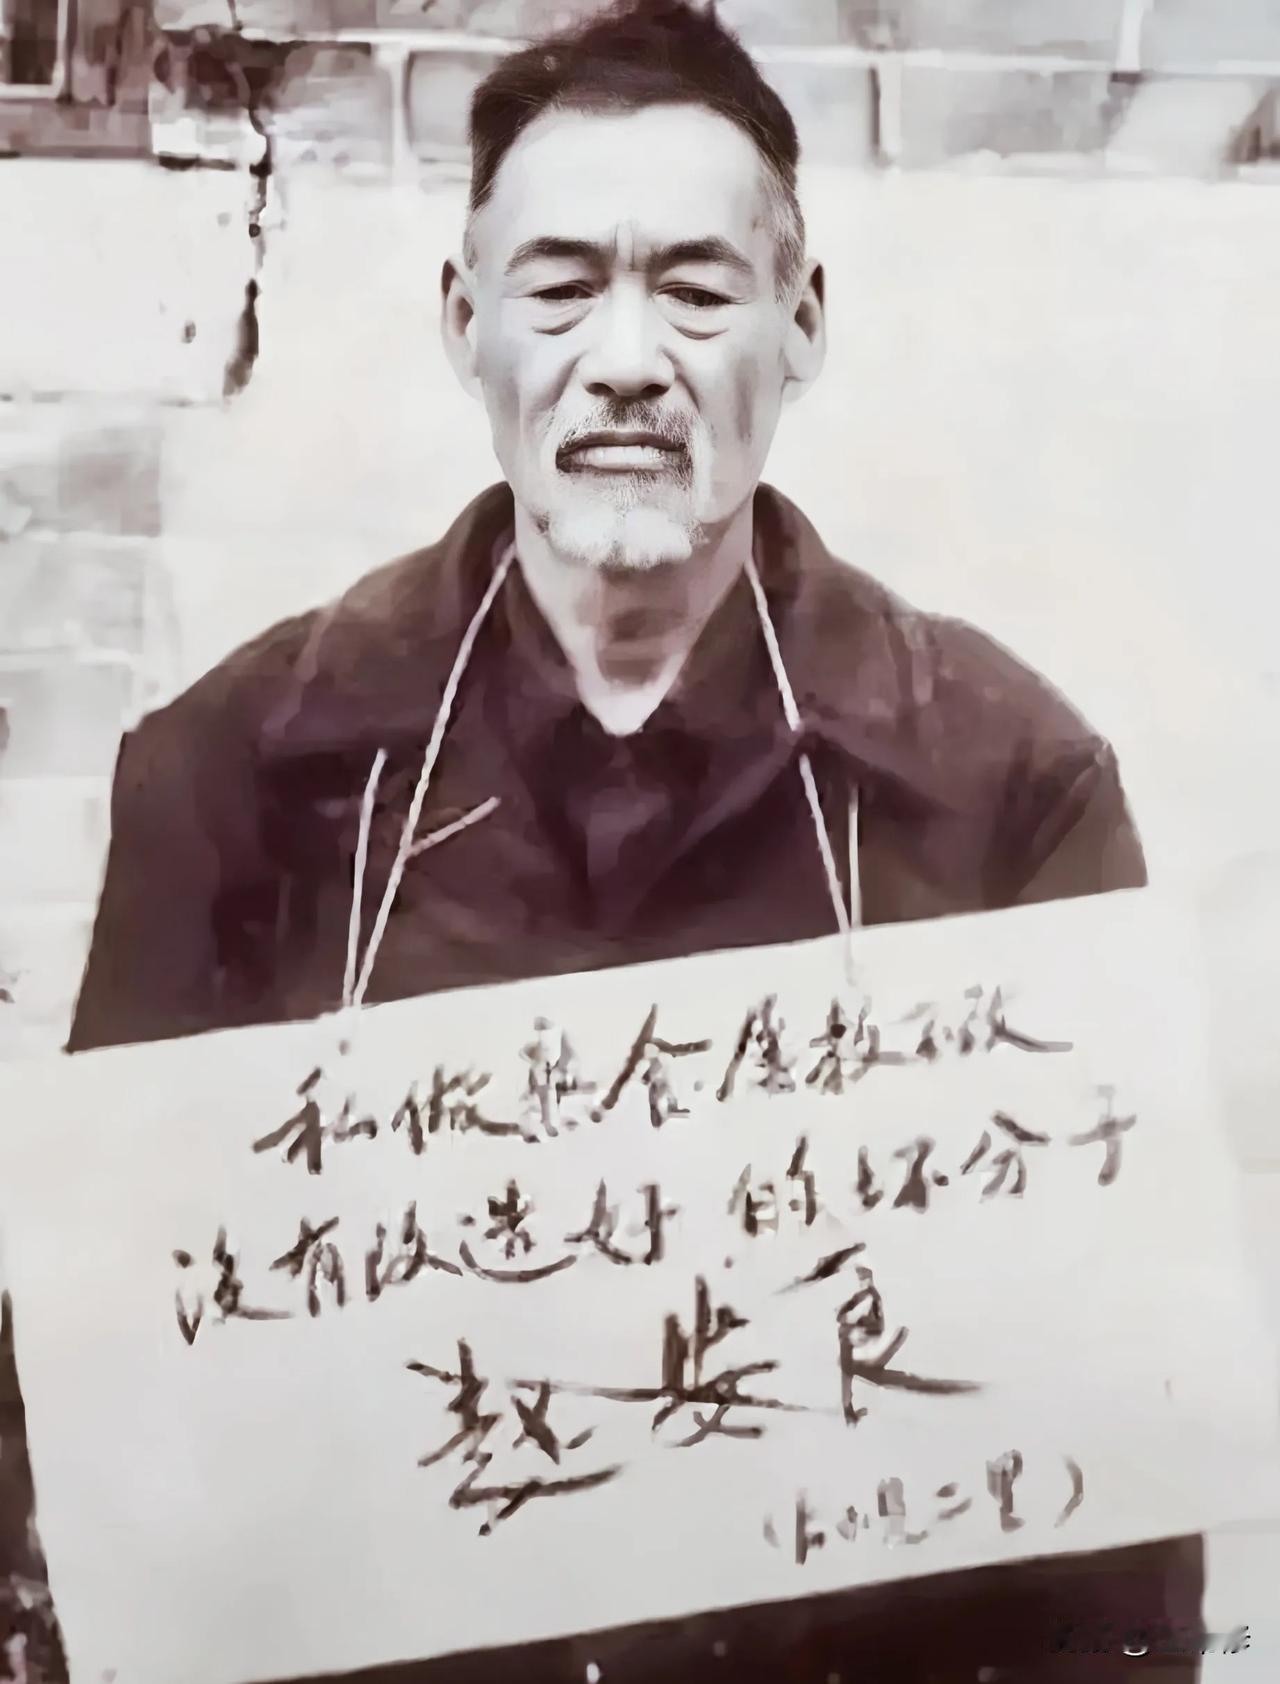 私做熟食屡教不改
没有改造好的坏分子
赵安良
二里)